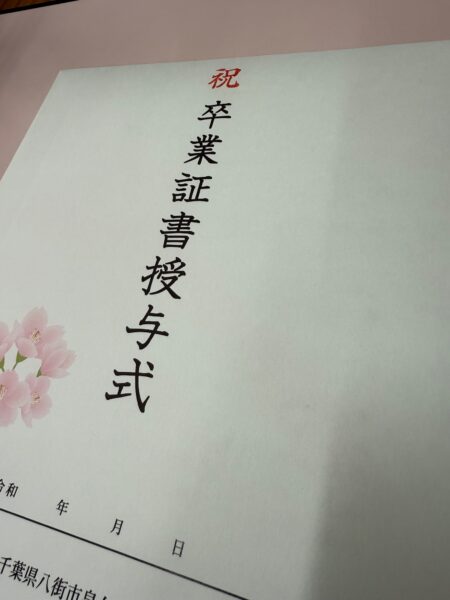 祝
卒業証書授与式
令和 年 月 日
千葉県八街市